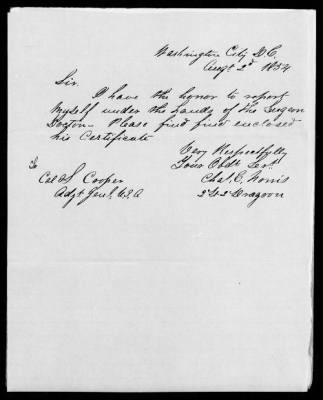 Washington City D.C.
Augt 2d 1854
Sir.
I have the honor to report
Myself under the hands of the Surgeon
Doctor- Please find find enclosed
his Certificate
Very Respectfully
Your Obdt Servt
Chas. E. Norris
2 Lt 2 Dragoon
To
Col S. Cooper
Adgt Genl. U.S.A